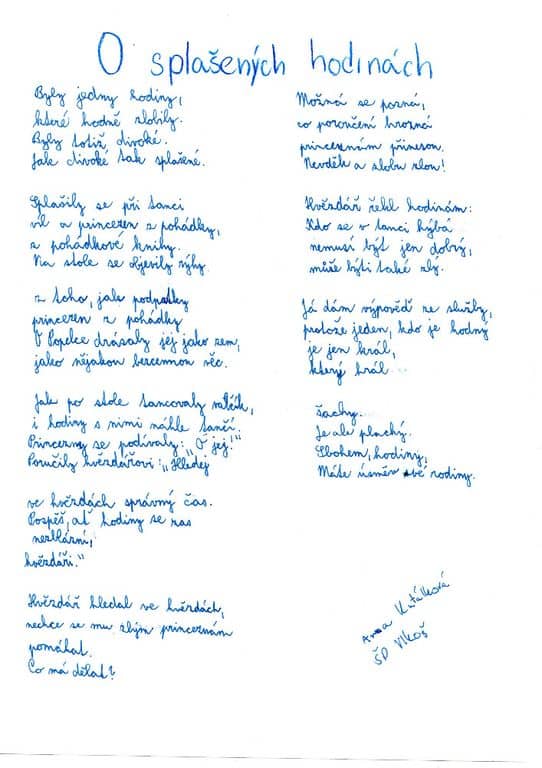 O splašených hodinách
Byly jedny hodiny,
které hodně zlobily.
Byly totiž divoké.
Jak divoké tak splašené.
Splašily se při tanci
vil a princezen z pohádky,
z pohádkové knihy.
Na stole se objevily rýhy
z toho, jak podpatky
princezen z pohádky
O Popelce drásaly jej jako zem,
jako nějakou bezcennou věc.
Jak po stole tancovaly valčík,
i hodiny s nimi náhle tančí.
Princezny se podívaly: "O jej!"
Poručily hvězdářovi: "Hledej
ve hvězdách správný čas.
Pospěš, ať hodiny se zas
nezblázní,
hvězdáři."
Hvězdář hledal ve hvězdách,
nechce se mu zlým princeznám
pomáhat.
Co má dělat?
Možná se pozná,
co poručení hrozná
princeznám přinesou.
Nevděk a zlobu zlou!
Hvězdář řekl hodinám:
Kdo se v tanci hýbá
nemusí být jen dobrý,
může býti také zlý.
Já dám výpověď ze služby,
protože jeden, kdo je hodný
je jen král,
který hrál
šachy.
Je ale plachý.
Sbohem, hodiny,
Máte úsměv své rodiny.
Anna
ŠD Vlkoš